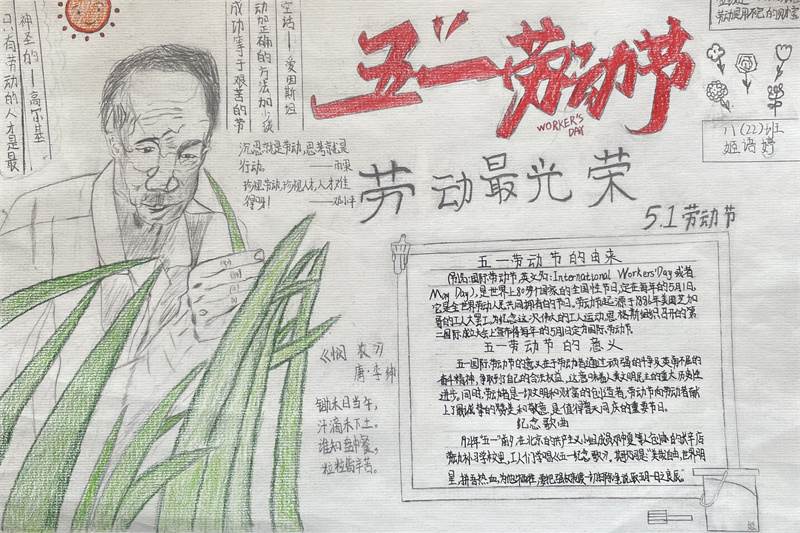 神圣的——高尔基
只有劳动的人才是最
空话——爱因斯坦
动加正确的方法加少谈
成功等于艰苦的劳
沉思就是劳动,思考就是
行动。——雨果
珍视劳动,珍视人才,人才难
得呀!——邓小平
五一劳动节
WORKER'S
DAY
劳动最光荣
5.1劳动节
劳动是用不完的财富
八(22)班
姬语婷
《悯农》
唐·李绅
锄禾日当午,
汗滴禾下土。
谁知盘中餐,
粒粒皆辛苦。
五一劳动节的由来
国际劳动节,英文为:International Workers' Day或者
May Day),是世界上80多个国家的全国性节日,定在每年的5月1日,
它是全世界劳动人民共同拥有的节日。劳动节起源于1886年美国芝加
哥的工人大罢工,为纪念这一次伟大的工人运动,恩格斯组织召开的第
二国际成立大会上宣布将每年的5月1日定为国际劳动节。
五一劳动节的意义
五一国际劳动节的意义在于劳动者通过顽强的斗争及英勇不屈的
奋斗精神,争取到了自己的合法权益,这意味着人类文明民主的重大历史性
进步。同时,劳动者是一切文明和财富的创造者,劳动节向劳动者献
上了最诚挚的赞美和敬意,是值得普天同庆的重要节日。
纪念歌曲
1921年"五一"前夕,在北京的共产主义小组成员邓中夏等人创办的长辛店
劳动补习学校里,工人们学唱《五一纪念歌》。其歌词是"美哉自由,世界明